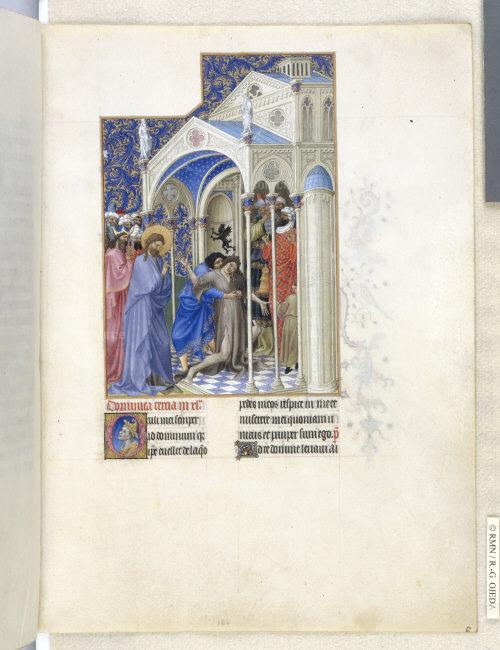 Dominica tercia in xlᵃ
Oculi mei semper
ad dominum q̄
ipe euellet de laqo
pedes meos respice in me et
miserere mei quoniam u
nicus et pauper sum ego. p̄
Ad te domine leuaui ai
© RMN / R.-G. OJEDA